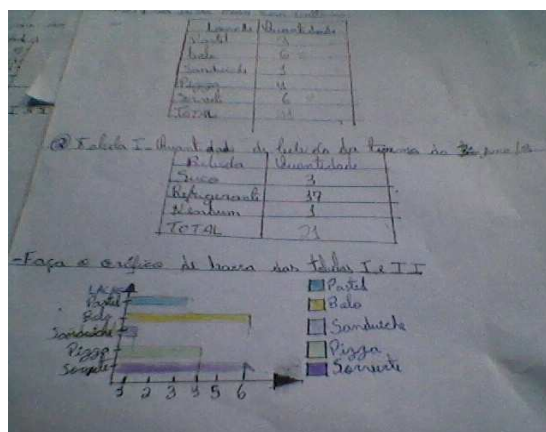 Lanche Quantidade
Pastel
Bolo 6
Sanduiche 1
Pizza 4
Sorvete 6
TOTAL 21
② Tabela I - Quantidade de bebida da turma do
Bebida Quantidade
Suco 3
Refrigerante 17
Nenhum 1
TOTAL 21
-Faça o gráfico de barra das tabelas I e II
Pastel
Bolo
Sanduiche
Pizza
Sorvete
1 2 3 4 5 6
Pastel
Bolo
Sanduiche
Pizza
Sorvete